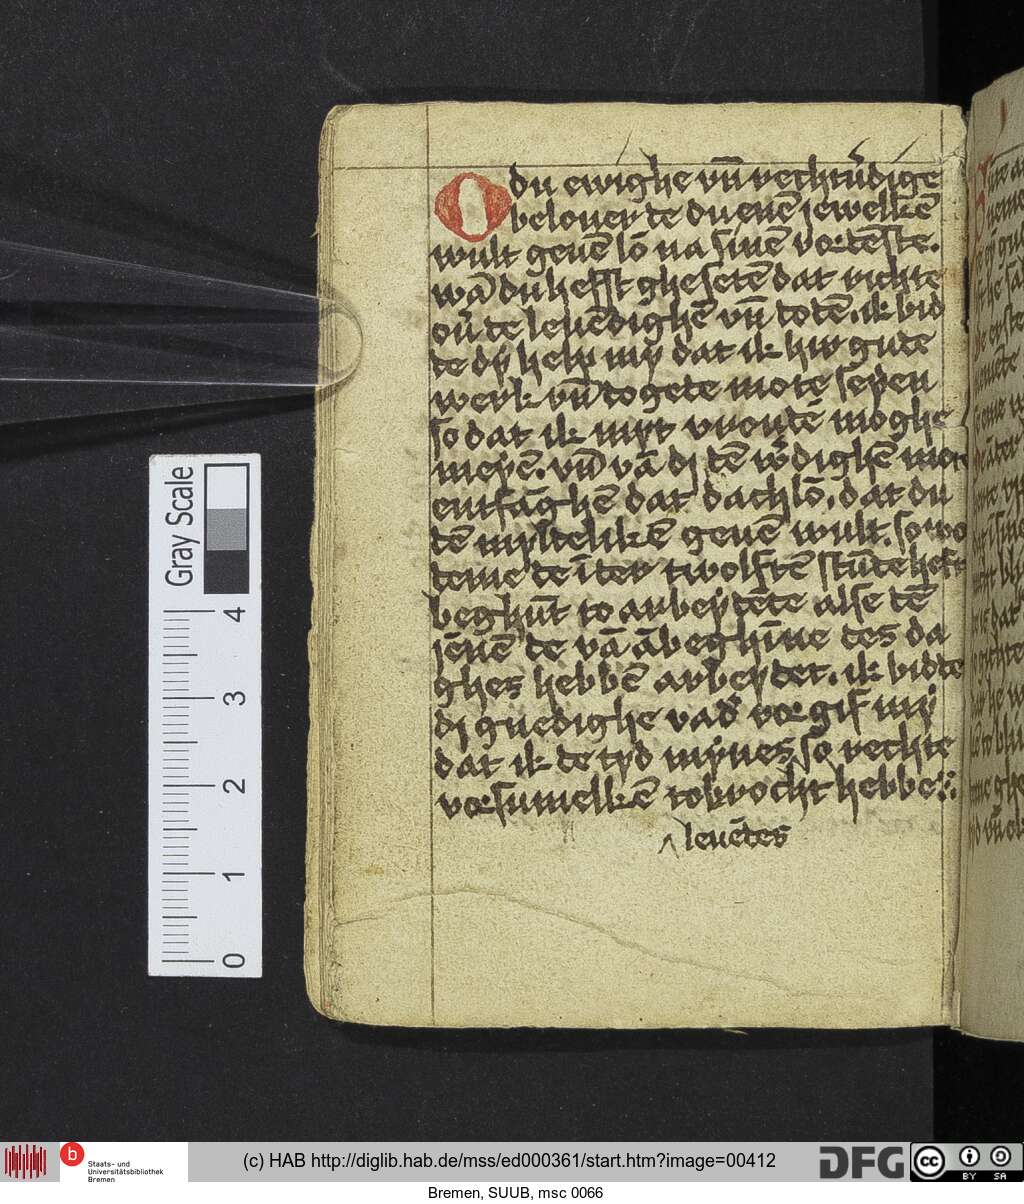 O du ewighe vn̄ rechtu̓dige
belouer te du enē jewelkē
wult geuē lō na sinē vordēste.
wā du hefft ghesetē dat richte
ou̓ te leuēdighē vn̄ totē. ik bid
te dÿ help mÿ dat ik hir gute
werk vn̄ togete mote seyen
so dat ik myt vroutē moghe
meyē. vn̄ vā di tē w̓dighē mote
entfāghē dat dachlō. dat du
tē mylteliken geuē wult. so wo
teme te ī ter twolftē stūte heft
beghūt to arbeytēte alse tē
jēnē te vā ābeghīne tes da
ghes hebbē arbeytet. ik bidte
di gnedighe vad̓ vorgif mÿ
dat ik te tyd mỹnes so rechte
vorsumelkē tobrocht hebbe
^ leuētes
Gray Scale
0 1 2 3 4
b
Staats- und
Universitätsbibliothek
Bremen
(c) HAB http://diglib.hab.de/mss/ed000361/start.htm?image=00412
DFG
cc BY SA
Bremen, SUUB, msc 0066